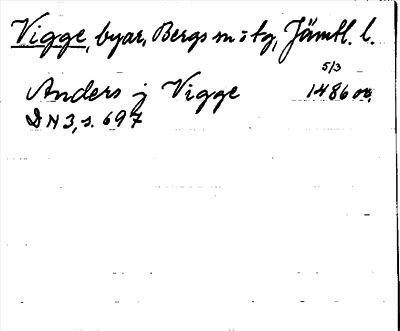 Vigge, byar, Bergs sn o tg, Jämtl. l.
Anders j Vigge 5/3 1486 or.
DN 3, s. 697